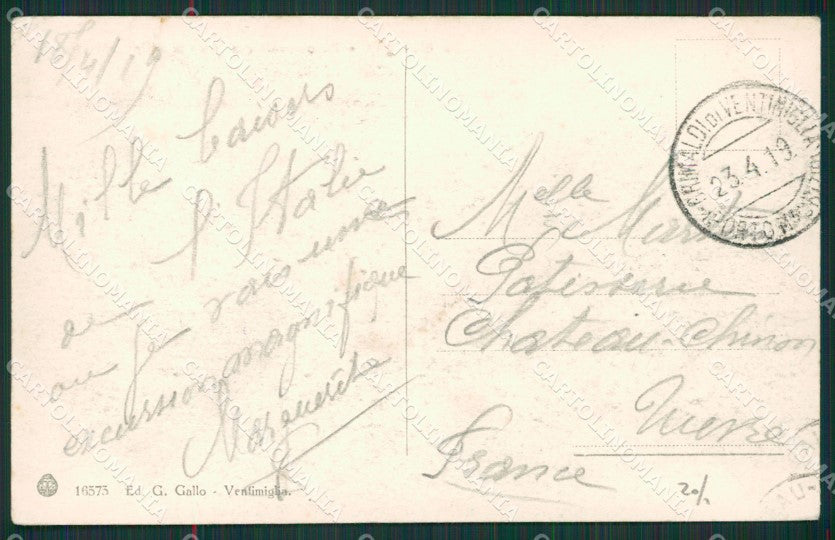 18/4/19
Mille baisers
de l'Italie
ou je vais une
excursion magnifique
Marguerite
Melle
Patisserie
Chateau-Chinon
Nievre
France
GRIMALDI DI VENTIMIGLIA
23.4.19
PORTO M
20/.
16575 Ed. G. Gallo - Ventimiglia.
CARTOLINOMANIA